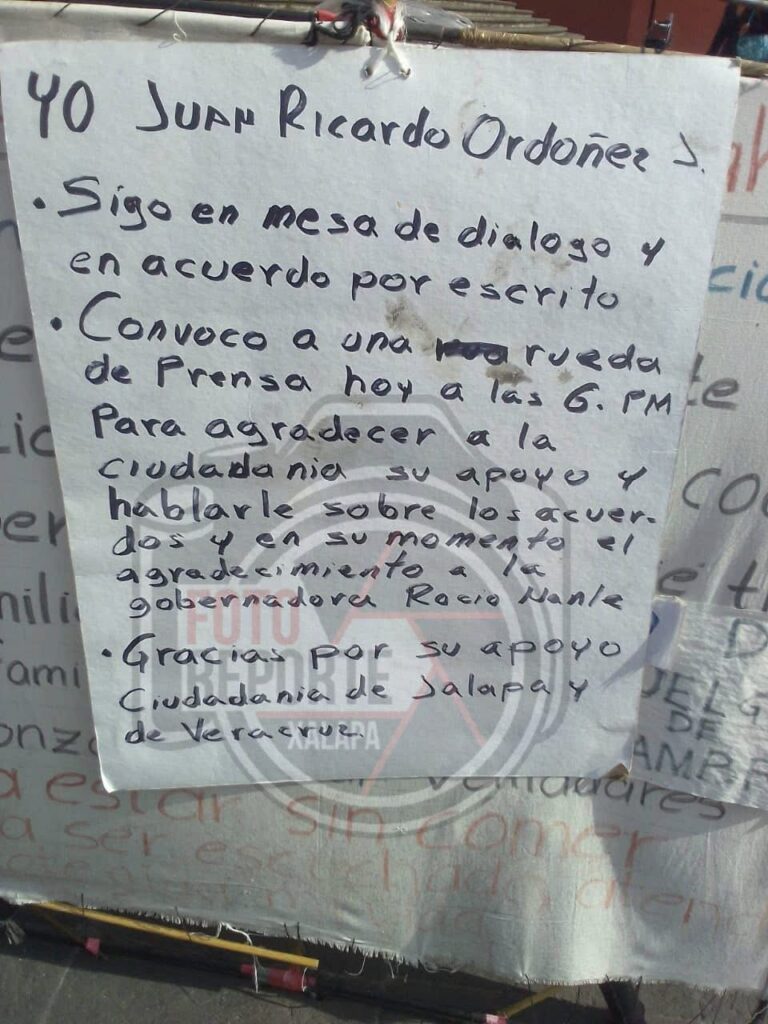 YO JUAN RicaRdo Ordoñez J.
• Sigo en mesa de dialogo y
en acuerdo por escrito
• Convoco a una rueda
de Prensa hoy a las 6. PM
Para agradecer a la
ciudadania su apoyo y
hablarle sobre los acuer-
dos y en su momento el
agradecimiento a la
gobernadora Rocio Nanle
• Gracias por su apoyo
Ciudadania de Jalapa y
de Veracruz.
FOTO
REPORTE
XALAPA
DE
a estar sin comer
a ser escuchado